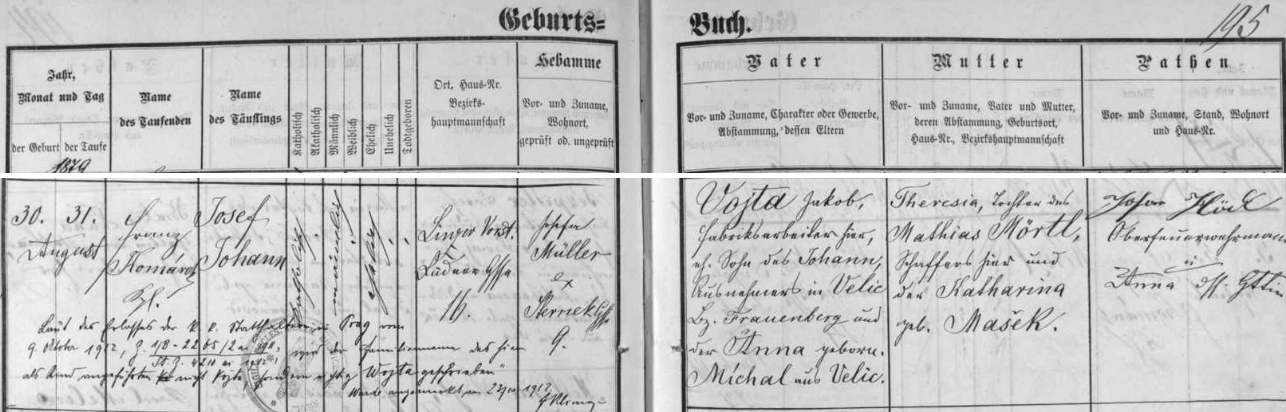 Geburts=
Buch.
195
Jahr,
Monat und Tag
der Geburt
der Taufe
1879
Name
des Taufenden
Name
des Täuflings
Katholisch
Akatholisch
Männlich
Weiblich
Ehelich
Unehelich
Todtgeboren
Ort, Haus-Nr.
Bezirks-
hauptmannschaft
Hebamme
Vor- und Zuname,
Wohnort,
geprüft od. ungeprüft
Vater
Vor- und Zuname, Charakter oder Gewerbe,
Abstammung, dessen Eltern
Mutter
Vor- und Zuname, Vater und Mutter,
deren Abstammung, Geburtsort,
Haus-Nr., Bezirkshauptmannschaft
Pathen
Vor- und Zuname, Stand, Wohnort
und Haus-Nr.
30. 31.
August
Franz
Josef
Johann
katholisch
männlich
ehelich
Linzer Vorst.
Müller
9.
Vojta Jakob,
Fabriksarbeiter hier,
eh. Sohn des Johann,
Ausnehmers in Velic
Bz. Frauenberg und
der Anna geborn.
Michal aus Velic.
Theresia, Tochter des
Mathias Mörtl,
Schaffers hier und
der Katharina
geb. Mašek.
Josef
Oberfeuerwehrmann
u
Anna dss. Gttin
Laut des Erlasses der k. k. Statthalterei in Prag vom
9. Oktober 1912, wird der Familienname des hier
als Kind angeführten nicht Vojta sondern richtig „Wojta geschrieben"
1912